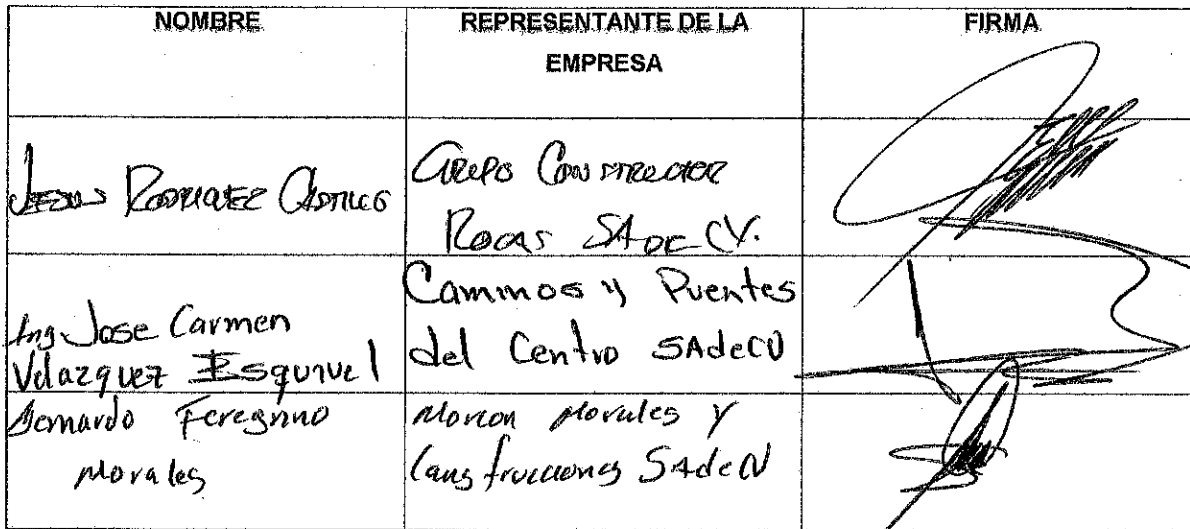 NOMBRE
REPRESENTANTE DE LA
EMPRESA
FIRMA
JESUS RODRIGUEZ CASTILLO
GRUPO CONSTRUCTOR
ROCAS SA DE CV.
Ing. Jose Carmen
Velazquez Esquivel
Caminos y Puentes
del Centro SAdeCV
Bernardo Feregrino
Morales
Morcon Morales y
Construcciones SAdeCV